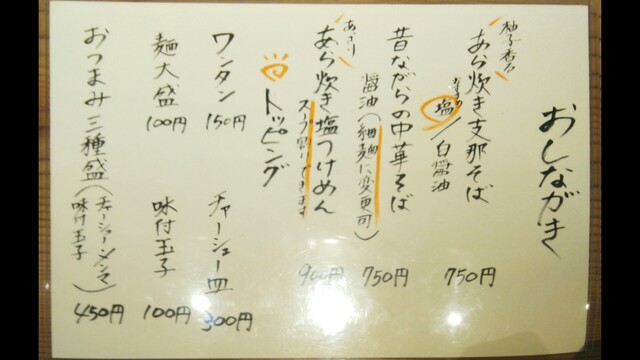 おしながき
柚子香る
あら炊き支那そば 750円
おすすめ
塩/白醤油
昔ながらの中華そば 750円
醤油(細麺に変更可)
あっさり
あら炊き塩つけめん 900円
スープ割りできます
トッピング
ワンタン 150円
チャーシュー皿 300円
麺大盛 100円
味付玉子 100円
おつまみ三種盛(チャーシュー・メンマ・味付玉子) 450円